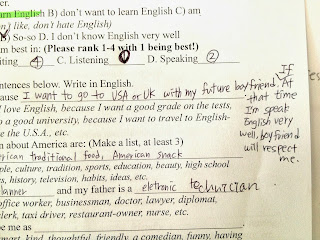 arn English B) don't want to learn English C) am
n't like, don't hate English)
B) So-so D. I don't know English very well
m best in: (Please rank 1-4 with 1 being best!)
iting 4 C. Listening 1 D. Speaking 2
entences below. Write in English.
cause I want to go to USA or UK with my future boyfriend. If At
that time
I'm speak
English very
well, boyfriend
will respect
me.
I love English, because I want a good grade on the tests,
o a good university, because I want to travel to English-
e the U.S.A., etc.
n about America are: (Make a list, at least 3)
erican traditional food, American snack
ple, culture, tradition, sports, education, beauty, high school
s, history, television, habits, ideas, etc.
lanner and my father is a eletronic technician
office worker, businessman, doctor, lawyer, diplomat,
clerk, taxi driver, restaurant-owner, nurse, etc.
be me as
smart, kind, thoughtful, friendly, a comedian, funny, having